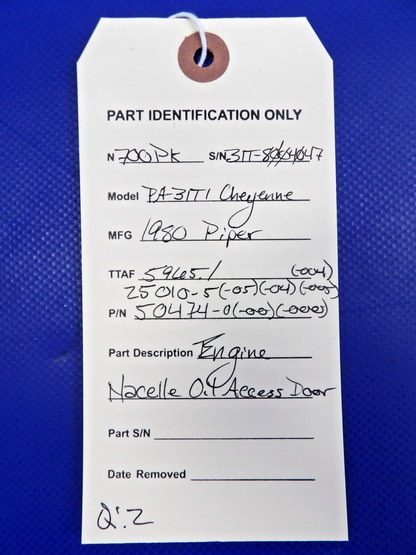 PART IDENTIFICATION ONLY
N 700PK S/N 31T-8004047
Model PA-31T1 Cheyenne
MFG 1980 Piper
TTAF 5965.1 (-004)
25010-5(-05)(-04)(-005)
P/N 50474-0(-00)(-000)
Part Description Engine
Nacelle Oil Access Door
Part S/N
Date Removed
Q:2